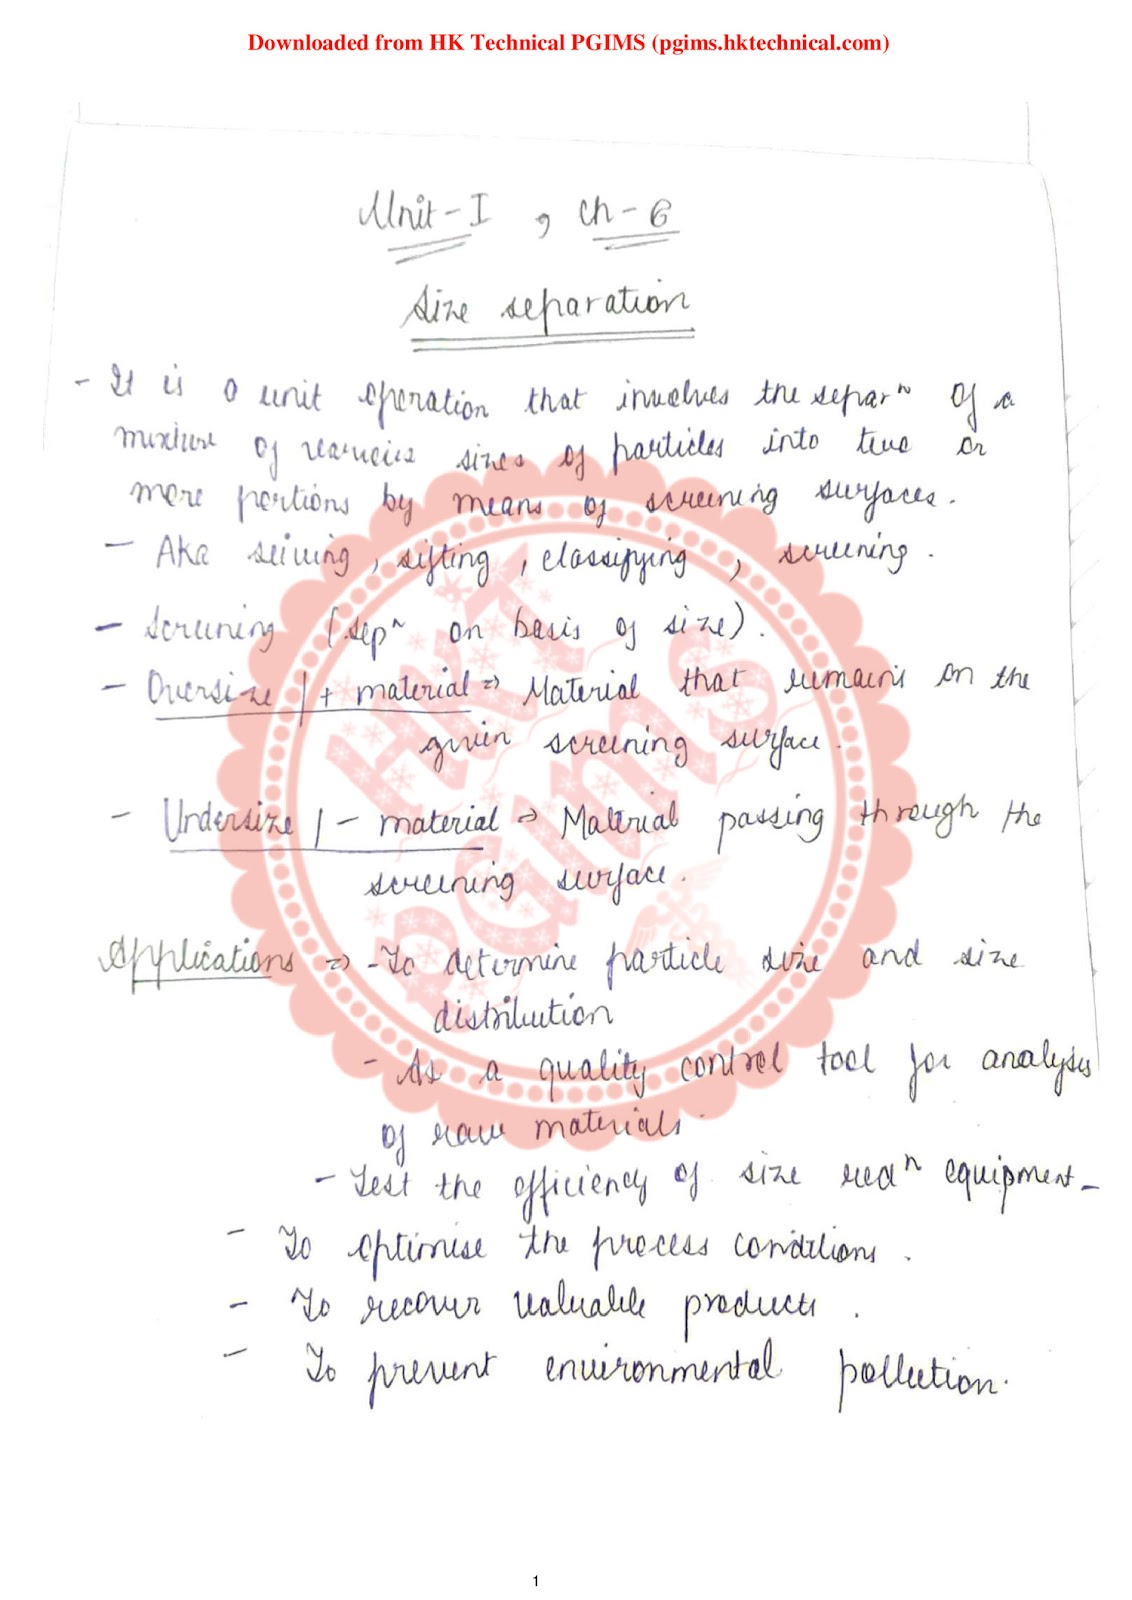 Downloaded from HK Technical PGIMS (pgims.hktechnical.com)
Unit-I , Ch-6
Size separation
- It is a unit operation that involves the separⁿ of a
mixture of various sizes of particles into two or
more portions by means of screening surfaces.
- Aka seiving, sifting, classifying, screening.
- Screening (sepⁿ on basis of size).
- Oversize / + material ⇒ Material that remains on the
given screening surface.
- Undersize / - material ⇒ Material passing through the
screening surface.
Applications ⇒ - To determine particle size and size
distribution
- As a quality control tool for analysis
of raw materials.
- Test the efficiency of size redⁿ equipment-
- To optimise the process conditions.
- To recover valuable products.
- To prevent environmental pollution.
HKT
PGIMS
1